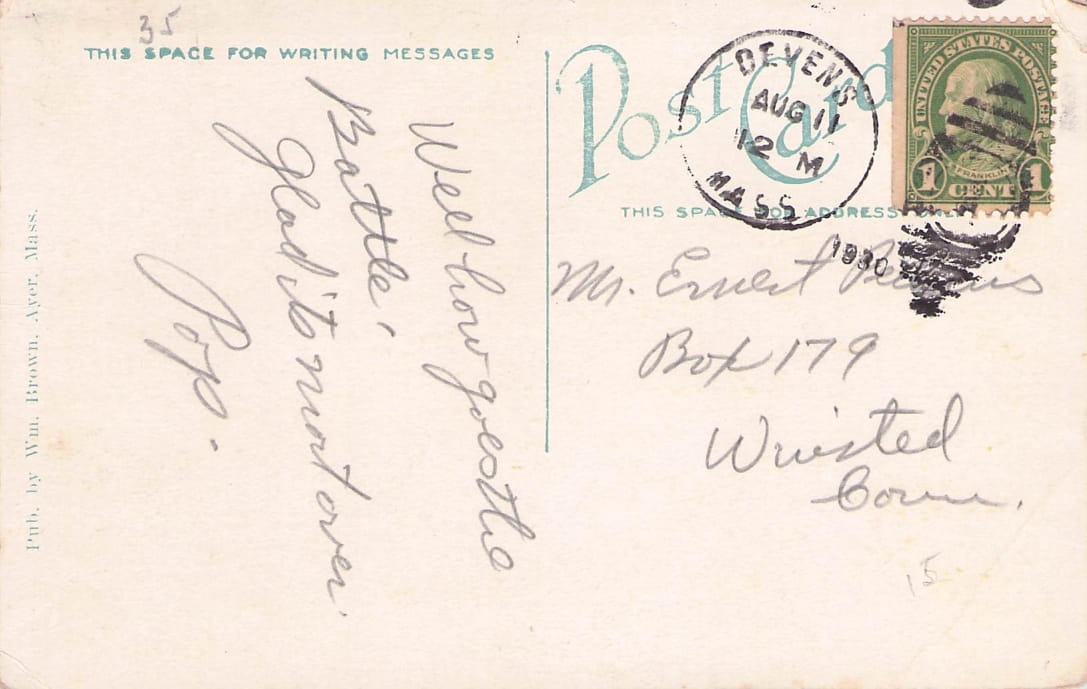 35
THIS SPACE FOR WRITING MESSAGES
Post Card
THIS SPACE FOR ADDRESS ONLY
DEVENS
AUG 11
12 M
MASS
1930
UNITED STATES POSTAGE
FRANKLIN
1 CENT 1
Well how goes the
Battle'
Glad its most over.
Pop.
Mr. Ernest
Box 179
Winsted
Conn.
15
Pub. by Wm. Brown, Ayer, Mass.